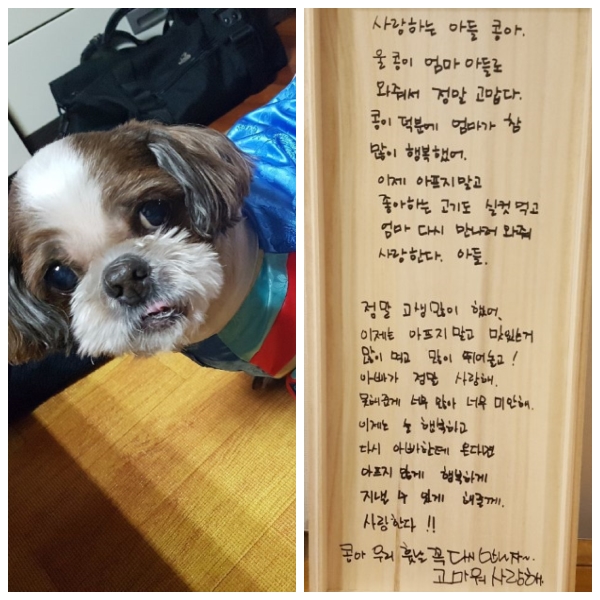 사랑하는 아들 콩아.
울 콩이 엄마 아들로
와줘서 정말 고맙다.
콩이 덕분에 엄마가 참
많이 행복했어.
이제 아프지말고
좋아하는 고기도 실컷 먹고
엄마 다시 만나러 와줘
사랑한다. 아들.
정말 고생많이 했어.
이제는 아프지말고 맛있는거
많이 먹고 많이 뛰어놀고!
아빠가 정말 사랑해.
못해준게 너무 많아 너무 미안해.
이제는 늘 행복하고
다시 아빠한테 온다면
아프지 않게 행복하게
지낼 수 있게 해줄께.
사랑한다!!
콩아 우리 훗날 꼭 다시 만나자~
고마워 사랑해